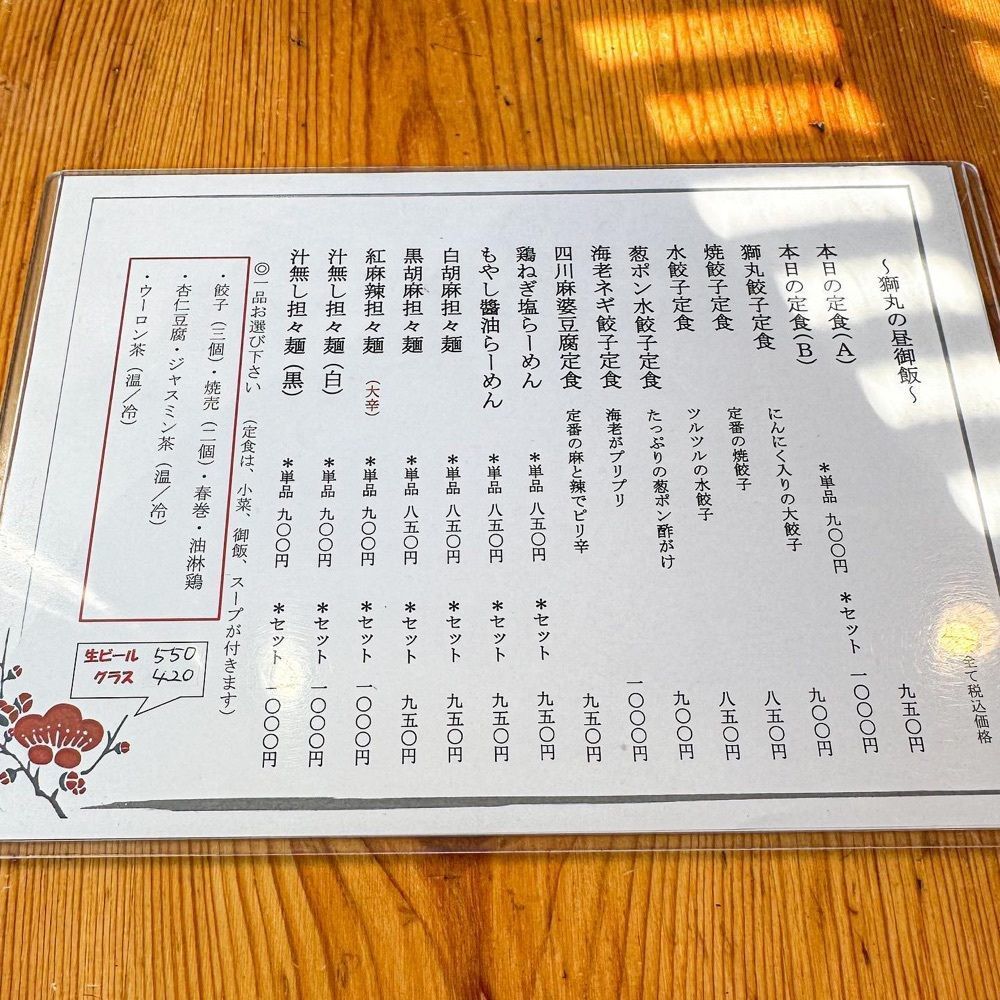 ～獅丸の昼御飯～
全て税込価格
本日の定食（A） 九五〇円
本日の定食（B） ＊単品 九〇〇円 ＊セット 一〇〇〇円
獅丸餃子定食 にんにく入りの大餃子 九〇〇円
焼餃子定食 定番の焼餃子 八五〇円
水餃子定食 ツルツルの水餃子 八五〇円
葱ポン水餃子定食 たっぷりの葱ポン酢がけ 九〇〇円
海老ネギ餃子定食 海老がプリプリ 一〇〇〇円
四川麻婆豆腐定食 定番の麻と辣でピリ辛 九五〇円
鶏ねぎ塩らーめん ＊単品 八五〇円 ＊セット 九五〇円
もやし醬油らーめん ＊単品 八五〇円 ＊セット 九五〇円
白胡麻担々麺 ＊単品 八五〇円 ＊セット 九五〇円
黒胡麻担々麺 ＊単品 八五〇円 ＊セット 九五〇円
紅麻辣担々麺 （大辛） ＊単品 九〇〇円 ＊セット 一〇〇〇円
汁無し担々麺（白） ＊単品 九〇〇円 ＊セット 一〇〇〇円
汁無し担々麺（黒） ＊単品 九〇〇円 ＊セット 一〇〇〇円
◎一品お選び下さい （定食は、小菜、御飯、スープが付きます）
・餃子（三個）・焼売（二個）・春巻・油淋鶏
・杏仁豆腐・ジャスミン茶（温／冷）
・ウーロン茶（温／冷）
生ビール 550
グラス 420